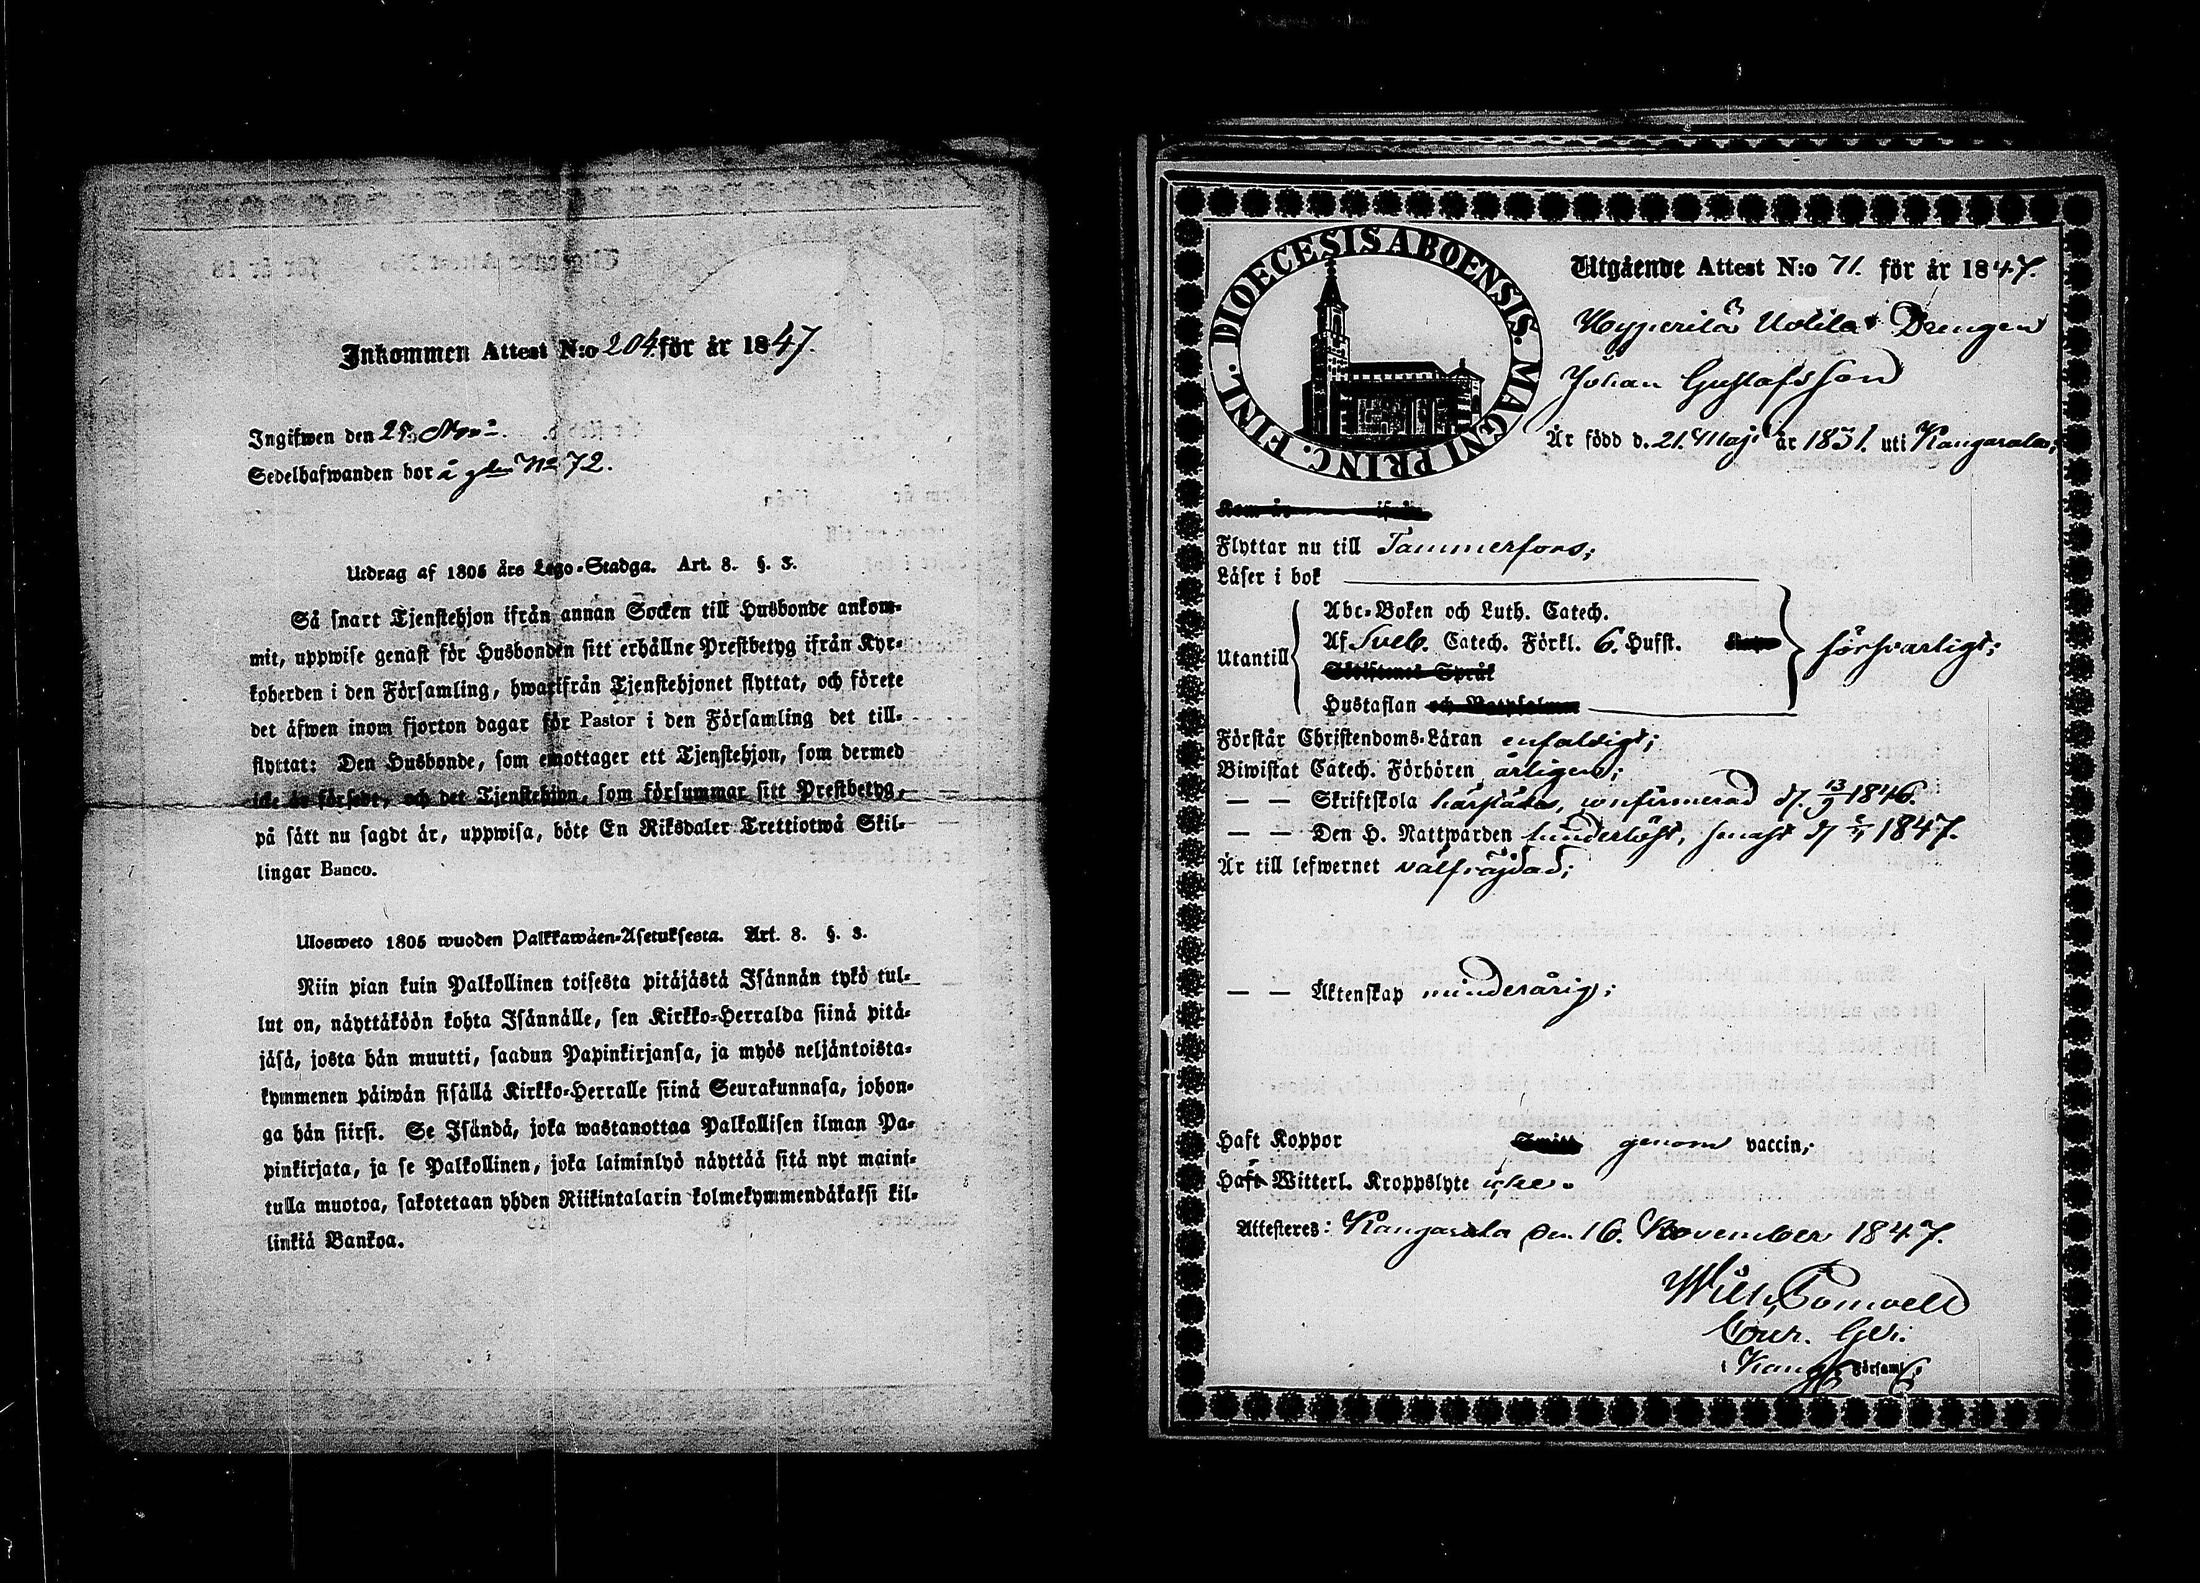 Inkommen Attest N:o 204 för år 1847.
Ingifwen den 25 Nov:
Sedelhafwanden bor å gln No 72.
Utdrag af 1805 års Lego-Stadga. Art. 8. §. 3.
Så snart Tjenstehjon ifrån annan Socken till Husbonde ankom-
mit, uppwise genast för Husbonden sitt erhållne Prestbetyg ifrån Kyr-
koherden i den Församling, hwarifrån Tjenstehjonet flyttat, och förete
det äfwen inom fjorton dagar för Pastor i den Församling det till-
flyttat: Den Husbonde, som emottager ett Tjenstehjon, som dermed
icke är försedt, och det Tjenstehjon, som försummar sitt Prestbetyg,
på sätt nu sagdt är, uppwisa, böte En Riksdaler Trettiotwå Skil-
lingar Banco.
Ulosweto 1805 wuoden Palkkawäen-Asetuksesta. Art. 8. §. 3.
Niin pian kuin Palkollinen toisesta pitäjästä Isännän tykö tul-
lut on, näyttäköön kohta Isännälle, sen Kirkko-Herralda siinä pitä-
jäsä, josta hän muutti, saadun Papinkirjansa, ja myös neljäntoista-
kymmenen päiwän sisällä Kirkko-Herralle siinä Seurakunnasa, johon-
ga hän siirsi. Se Isändä, joka wastanottaa Palkollisen ilman Pa-
pinkirjata, ja se Palkollinen, joka laiminlyö näyttää sitä nyt maini-
tulla muotoa, sakotetaan yhden Riikintalarin kolmekymmendäkaksi kil-
linkiä Bankoa.
DIOECESIS ABOENSIS. MAGNI PRINC. FINL.
Utgående Attest N:o 71. för år 1847.
Hyyperilä Uotila Drengen
Johan Gustafsson
Är född d. 21. Maji år 1831. uti Kangasala;
Kom år ifrån
Flyttar nu till Tammerfors;
Läser i bok
Utantill
Abc-Boken och Luth. Catech.
Af Sveb. Catech. Förkl. 6. Hufst.
Skriftenes Språk
Hustaflan och
försvarligt;
Förstår Christendoms-Läran enfaldigt;
Biwistat Catech. Förhören årligen;
— — Skriftskola härstädes, confirmerad d. 13/9 1846.
— — Den H. Nattwarden hinderlöst, senast d. 1847.
Är till lefwernet välfräjdad;
— — Äktenskap minderårig;
Haft Koppor genom vaccin;
Haft Witterl. Kroppslyte icke.
Attesteres: Kangasala den 16. November 1847.
Wilh.
i Kang: Församl: